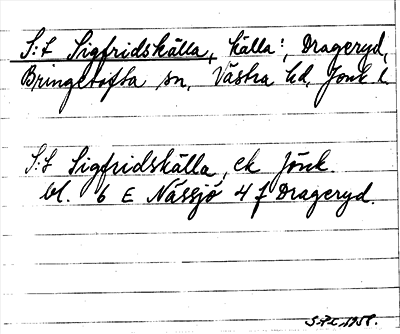 S:t Sigfridskälla, källa:, Drageryd,
Bringetofta sn, Västra hd, Jönk l.
S:t Sigfridskälla, ek Jönk.
bl. 6 E Nässjö 4 f Drageryd.
1958.